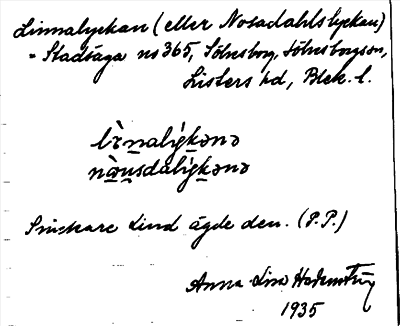 Linnalyckan (eller Nosadahlslyckan)
- Stadsäga no 365, Sölvesborg, Sölvesborgs sn,
Listers hd, Blek. l.
lìnalýkənə
nòusdalýkənə
Snickare Lind ägde den. (P.P.)
Anna Lisa
1935